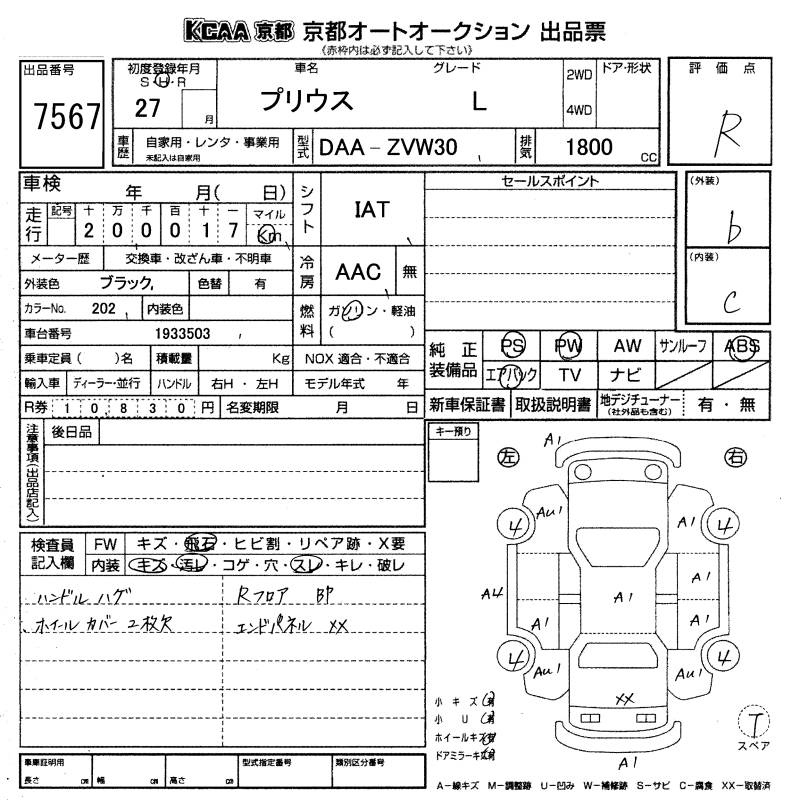 KCAA 京都 京都オートオークション 出品票
《赤枠内は必ず記入して下さい》
出品番号
7567
初度登録年月
S・H・R
27 月
車名 グレード
プリウス L
2WD
4WD
ドア・形状
評価点
R
車歴
自家用・レンタ・事業用
未記入は自家用
型式
DAA-ZVW30
排気
1800 CC
車検 年 月( 日)
走行
記号 十 万 千 百 十 一 マイル
2 0 0 0 1 7 Km
メーター歴 交換車・改ざん車・不明車
外装色 ブラック 色替 有
カラーNo. 202 内装色
車台番号 1933503
乗車定員( )名 積載量 Kg NOX 適合・不適合
輸入車 ディーラー・並行 ハンドル 右H・左H モデル年式 年
R券 10,830 円 名変期限 月 日
シフト
IAT
冷房
AAC 無
燃料
ガソリン・軽油
( )
セールスポイント
(外装)
b
(内装)
c
純正装備品
PS PW AW サンルーフ ABS
エアバック TV ナビ
新車保証書 取扱説明書 地デジチューナー 有・無
(社外品も含む)
注意事項(出品店記入)
後日品
キー預り
左 右
A1
AU1 A1
4 4
A1
A4 A1
A1 A1
4 4
AU1 AU1
XX
A1
T
スペア
検査員記入欄
FW キズ・飛石・ヒビ割・リペア跡・X要
内装 キズ・汚レ・コゲ・穴・スレ・キレ・破レ
ハンドル ハゲ Rフロア 凹
ホイール カバー 2枚欠 エンドパネル XX
小キズ 有
小U 有
ホイールキズ 有
ドアミラーキズ 有
車庫証明用
長さ cm 幅 cm 高さ cm
型式指定番号 類別区分番号
A-線キズ M-調整跡 U-凹み W-補修跡 S-サビ C-腐食 XX-取替済